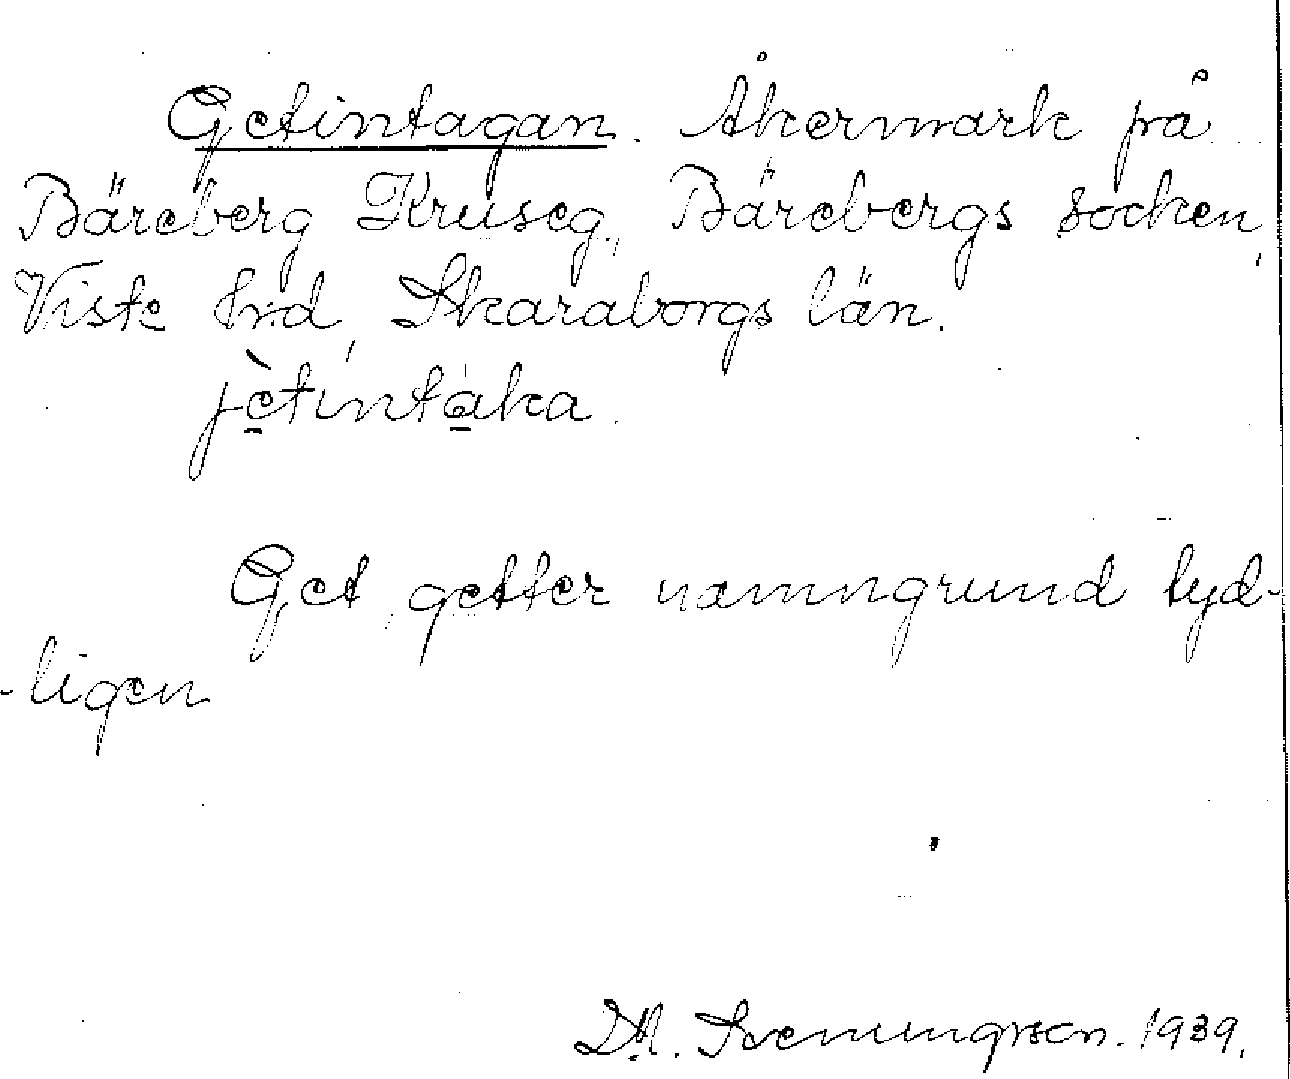 Getintagan. Åkermark på
Bäreberg Kruseg, Bärebergs socken,
Viste hrd, Skaraborgs län.
jètintáka.
Get, getter namngrund tyd-
-ligen
D.A. Sveningsson. 1939.